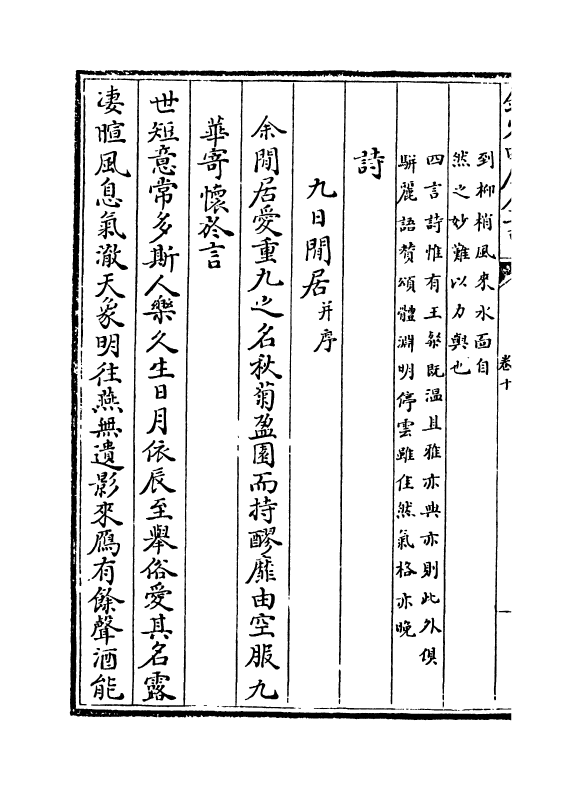 卷十
到柳梢風來水面自
然之妙難以力與也
四言詩惟有王粲既溫且雅亦典亦則此外俱
駢麗語贊頌體淵明停雲雖佳然氣格亦晚
詩
九日閒居并序
余閒居愛重九之名秋菊盈園而持醪靡由空服九
華寄懷於言
世短意常多斯人樂久生日月依辰至舉俗愛其名露
凄暄風息氣澈天象明往燕無遺影來鴈有餘聲酒能